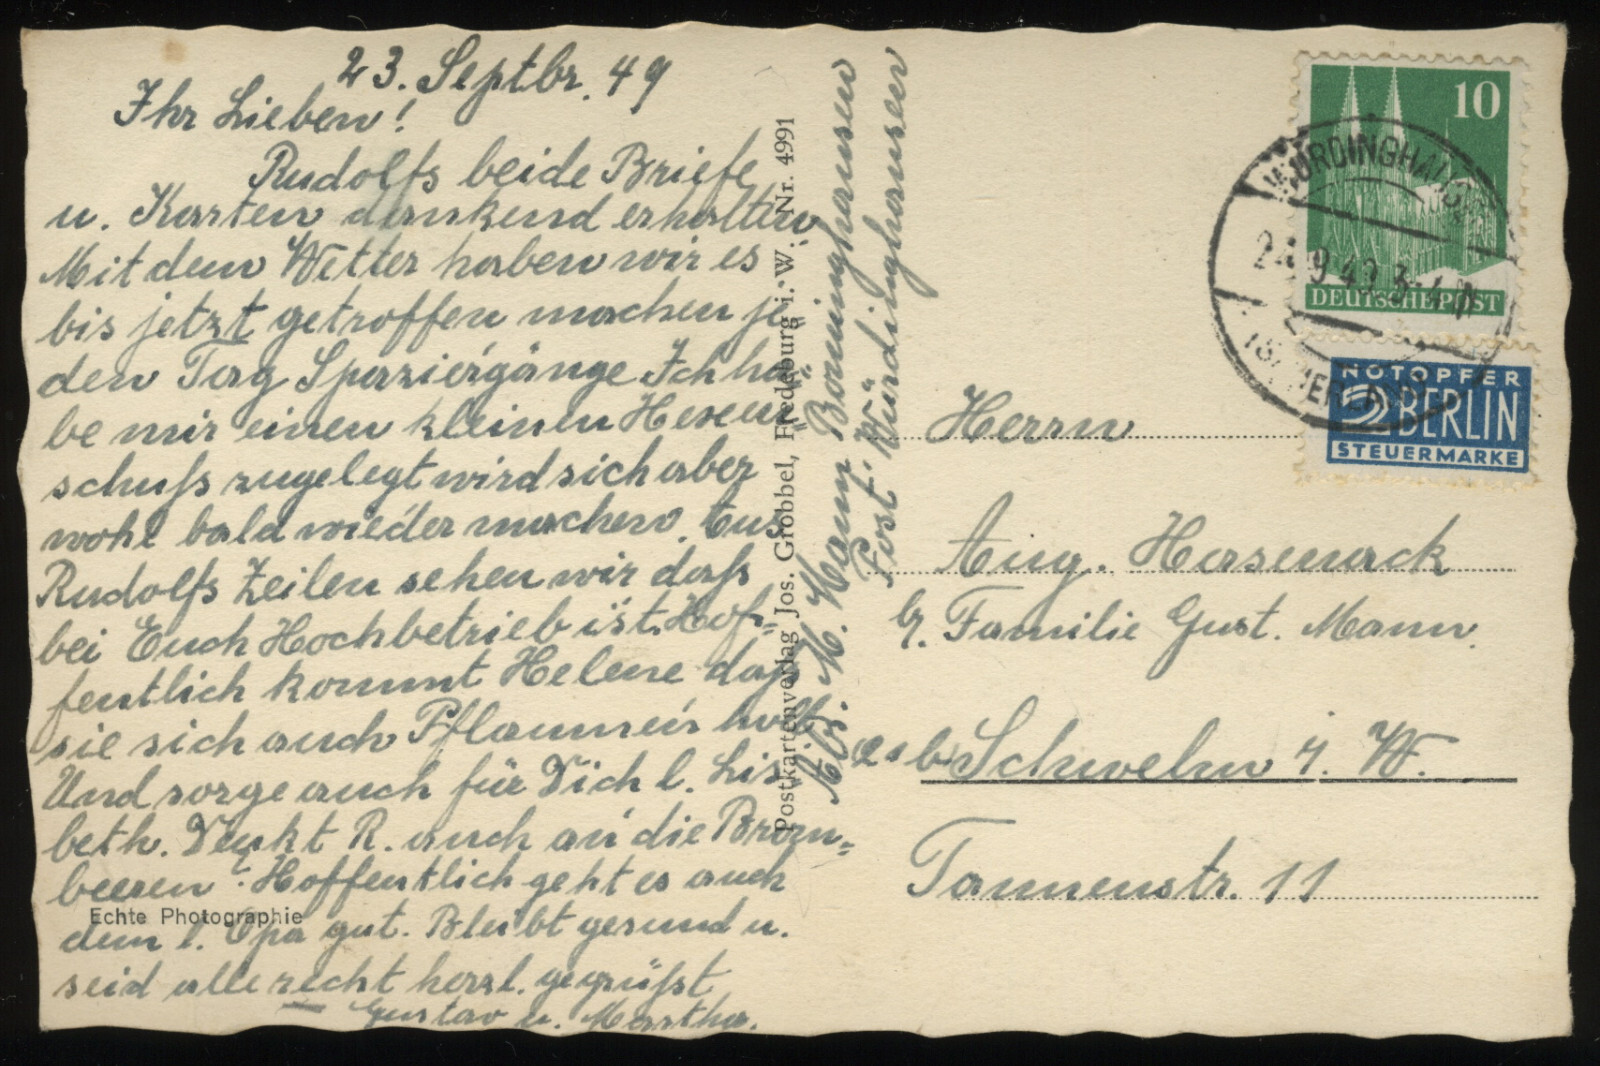 23. Septbr. 49
Ihr Lieben!
Rudolfs beide Briefe
u. Karten dankend erhalten
Mit dem Wetter haben wir es
bis jetzt getroffen machen je
den Tag Spaziergänge Ich ha=
be mir einen kleinen Hexen=
schuß zugelegt wird sich aber
wohl bald wieder machen. Aus
Rudolfs Zeilen sehen wir daß
bei Euch Hochbetrieb ist. Hof=
fentlich kommt Helene daß
sie sich auch Pflaumen holt
Und sorge auch für Dich l. Lis=
beth. Denkt R. auch an die Brom=
beeren? Hoffentlich geht es auch
dem l. Opa gut. Bleibt gesund u.
seid alle recht herzl. gegrüßt
Gustav u. Martha.
Echte Photographie
Postkartenverlag Jos. Grobbel, Fredeburg i. W. Nr. 4991
Abs. M. Mann Borninghausen
Post: Würdinghausen
10
DEUTSCHE POST
WÜRDINGHAUSEN
24.9.49
NOTOPFER
2 BERLIN
STEUERMARKE
Herrn
Aug. Hasenack
b. Familie Gust. Mann.
Schwelm i. W.
Tannenstr. 11